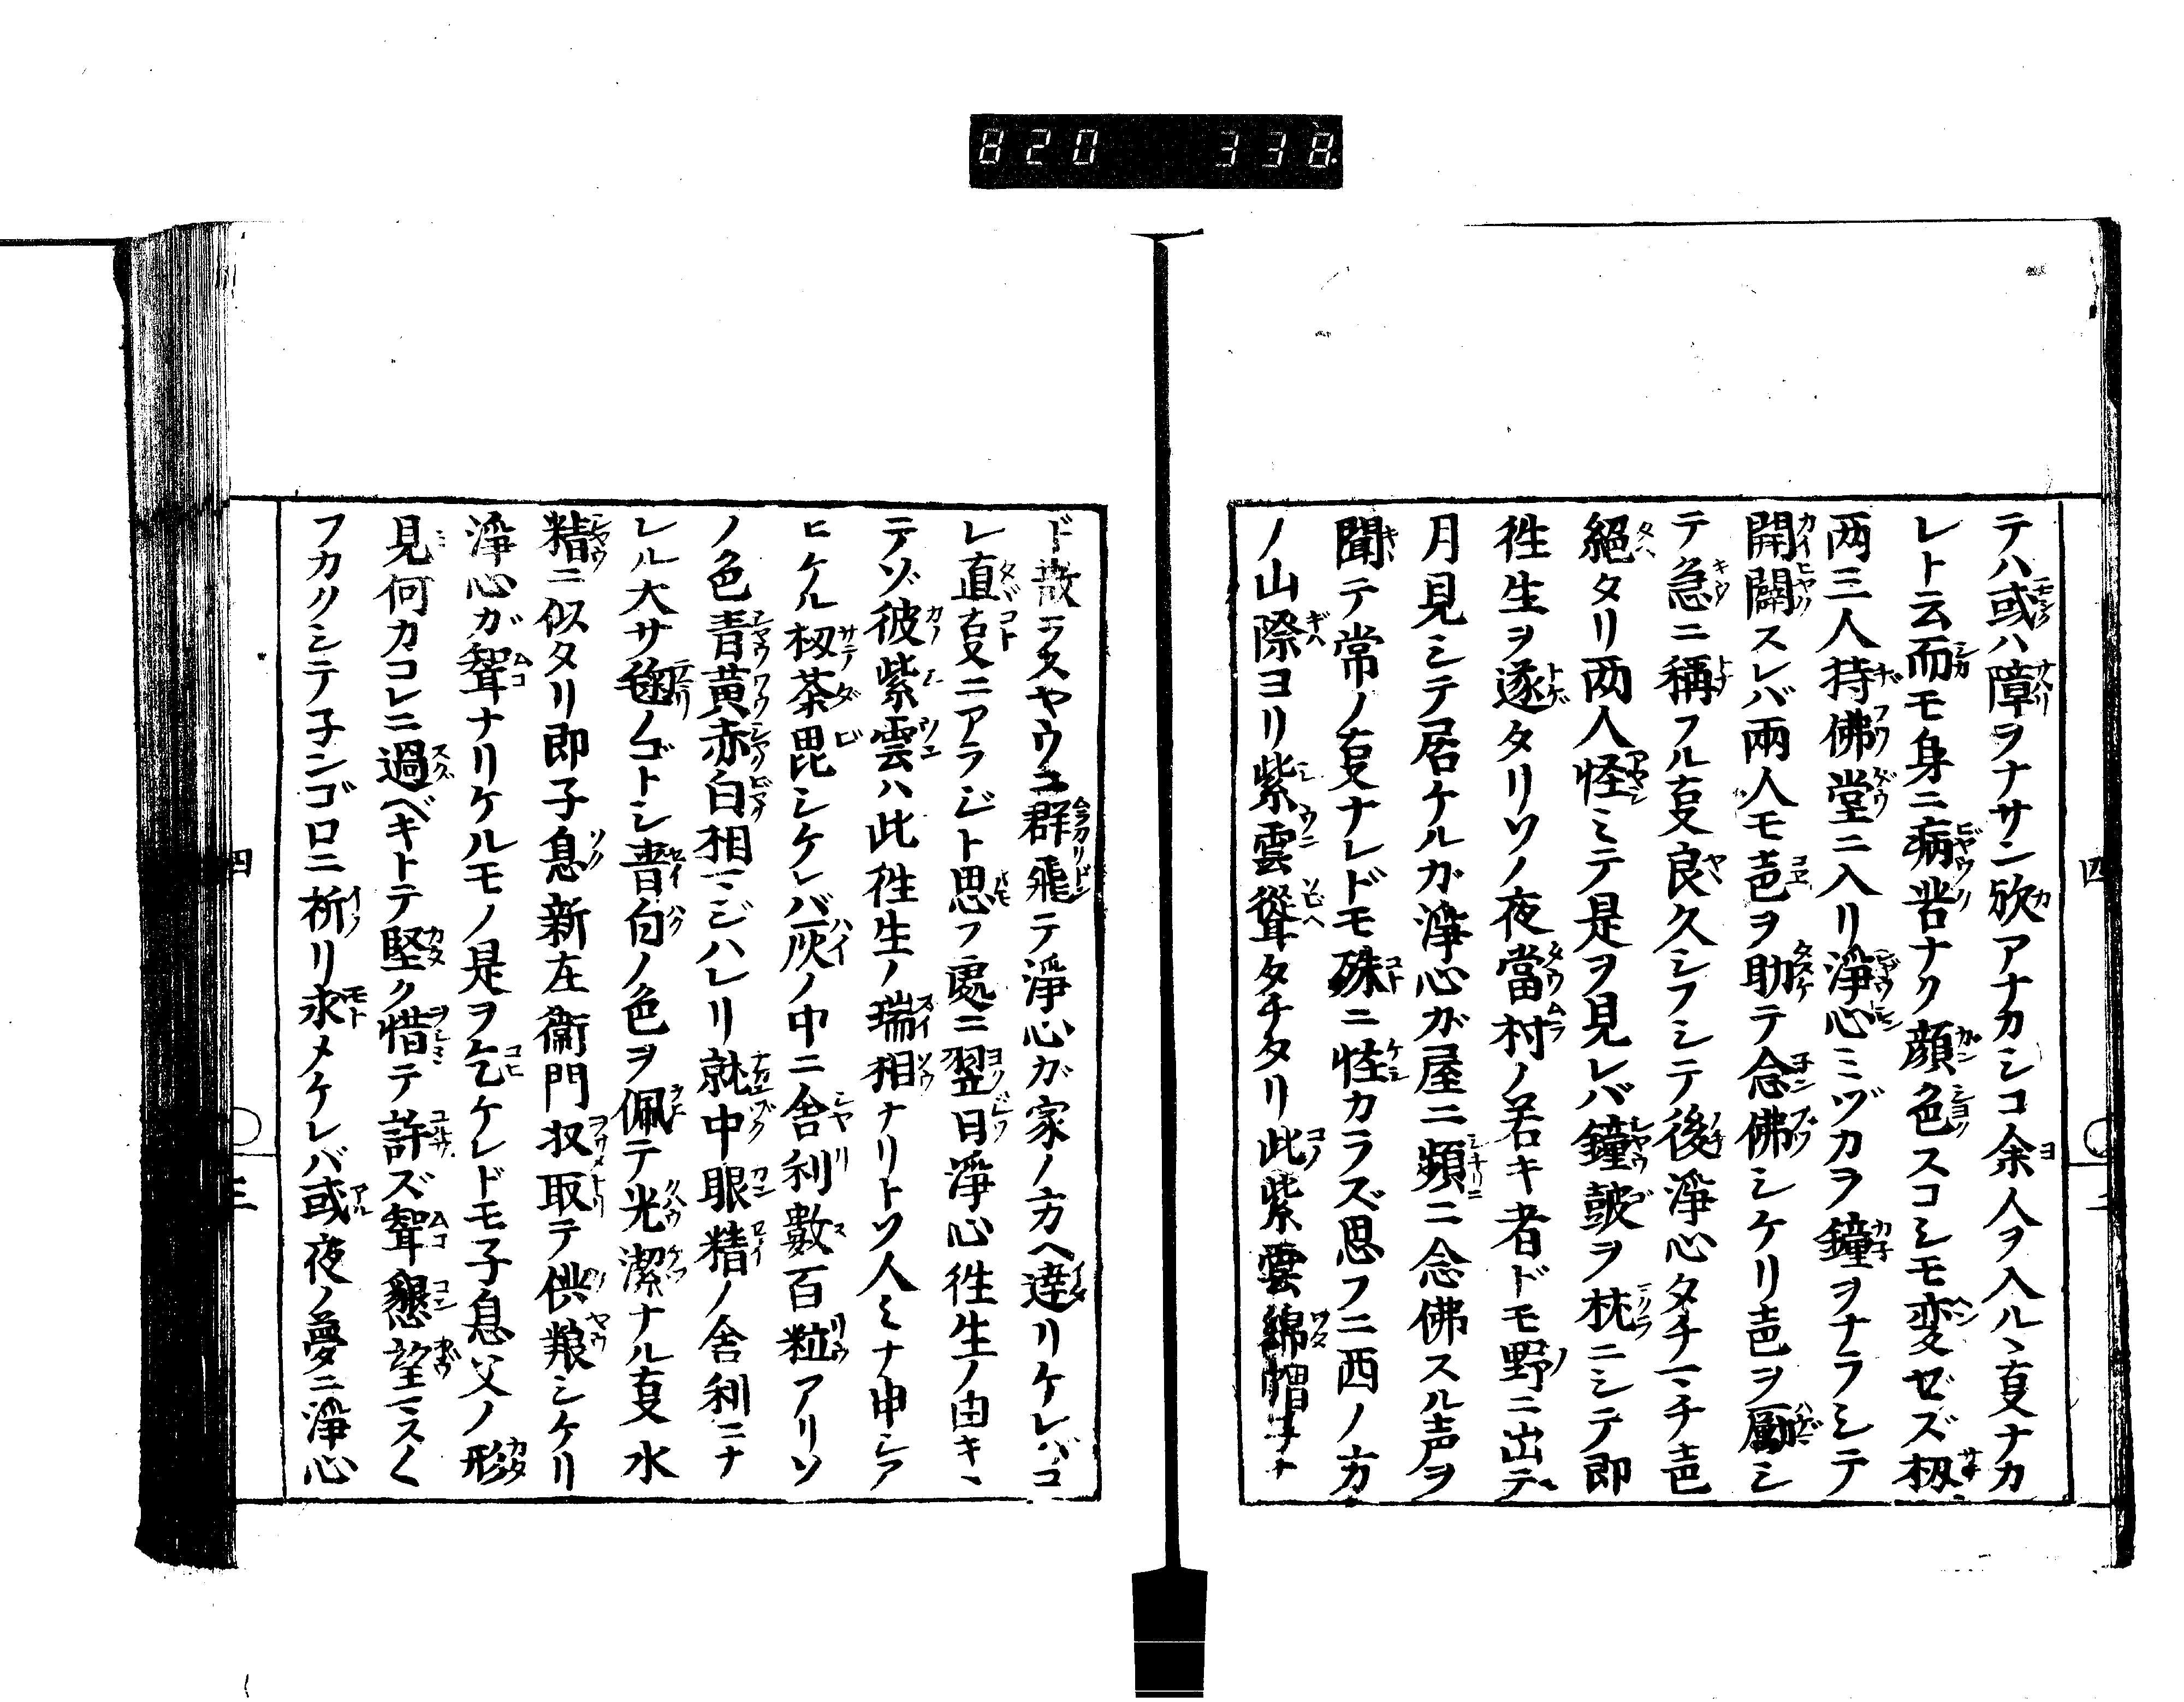 820 338
テハ或ハ障ヲナサン欤アナカシコ余人ヲ入ルヽ㕝ナカ
レト云而モ身ニ病苦ナク顔色スコシモ変ゼズ扨
两三人持佛堂ニ入リ淨心ミヅカラ鐘ヲナラシテ
開闢スレバ兩人モ声ヲ助テ念佛シケリ声ヲ勵シ
テ急ニ稱フル㕝良久シフシテ後淨心タチマチ声
絕タリ两人怪ミテ是ヲ見レバ鐘皷ヲ枕ニシテ即
徃生ヲ遂タリソノ夜當村ノ若キ者ドモ野ニ出テ
月見シテ居ケルガ淨心ガ屋ニ頻ニ念佛スル声ヲ
聞テ常ノ㕝ナレドモ殊ニ怪カラズ思フニ西ノ方
ノ山際ヨリ紫雲聳タチタリ此紫雲綿帽子ナ
四
二
ド散ラスヤウニ群飛テ淨心ガ家ノ方ヘ達リケレバコ
レ直㕝ニアラジト思フ處ニ翌日淨心徃生ノ由キヽ
テゾ彼紫雲ハ此徃生ノ瑞相ナリトソ人ミナ申シア
ヒケル扨茶毘シケレバ灰ノ中ニ舎利數百粒アリソ
ノ色青黄赤白相マジハレリ就中眼精ノ舎利ニナ
レル大サ毬ノゴトシ青白ノ色ヲ佩テ光潔ナル㕝水
精ニ似タリ即子息新左衞門収取テ供粮シケリ
淨心ガ聟ナリケルモノ是ヲ乞ケレドモ子息父ノ形
見何カコレニ過ベキトテ堅ク惜テ許ズ聟懇望マスく
フカクシテ子ンゴロニ祈リ求メケレバ或夜ノ夢ニ淨心
四
三